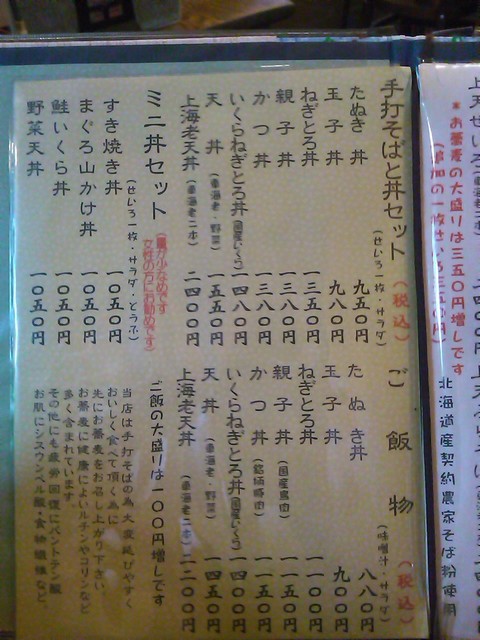 手打そばと丼セット (税込)
(せいろ一枚・サラダ)
たぬき丼 九五〇円
玉子丼 九八〇円
ねぎとろ丼 一三五〇円
親子丼 一三八〇円
かつ丼 一三八〇円
いくらねぎとろ丼(国産いくら) 一四八〇円
天丼(車海老・野菜) 一五五〇円
上海老天丼(車海老二本) 二四〇〇円
ミニ丼セット (量が少なめです 女性の方にお勧めです)
(せいろ一枚・サラダ・とうふ)
すき焼き丼 一〇五〇円
まぐろ山かけ丼 一〇五〇円
鮭いくら丼 一〇五〇円
野菜天丼 一〇五〇円
ご飯物 (税込)
(味噌汁・サラダ)
たぬき丼 八八〇円
玉子丼 九〇〇円
ねぎとろ丼 一一〇〇円
親子丼(国産鳥肉) 一一五〇円
かつ丼(銘柄豚肉) 一一五〇円
いくらねぎとろ丼(国産いくら) 一四〇〇円
天丼(車海老・野菜) 一四五〇円
上海老天丼(車海老二本) 二二〇〇円
ご飯の大盛りは一〇〇円増しです
当店は手打そばの為大変延びやすく
おいしく食べて頂く為に
先にお蕎麦をお召し上がり下さい
お蕎麦に健康によいルチンやコリンなど
多く含まれています
その他にも疲労回復にパントテン酸
お肌にシスウンベル酸・食物繊維など、
*お蕎麦の大盛りは三五〇円増しです
(追加の一枚せいろ三五〇円)
北海道産契約農家そば粉使用